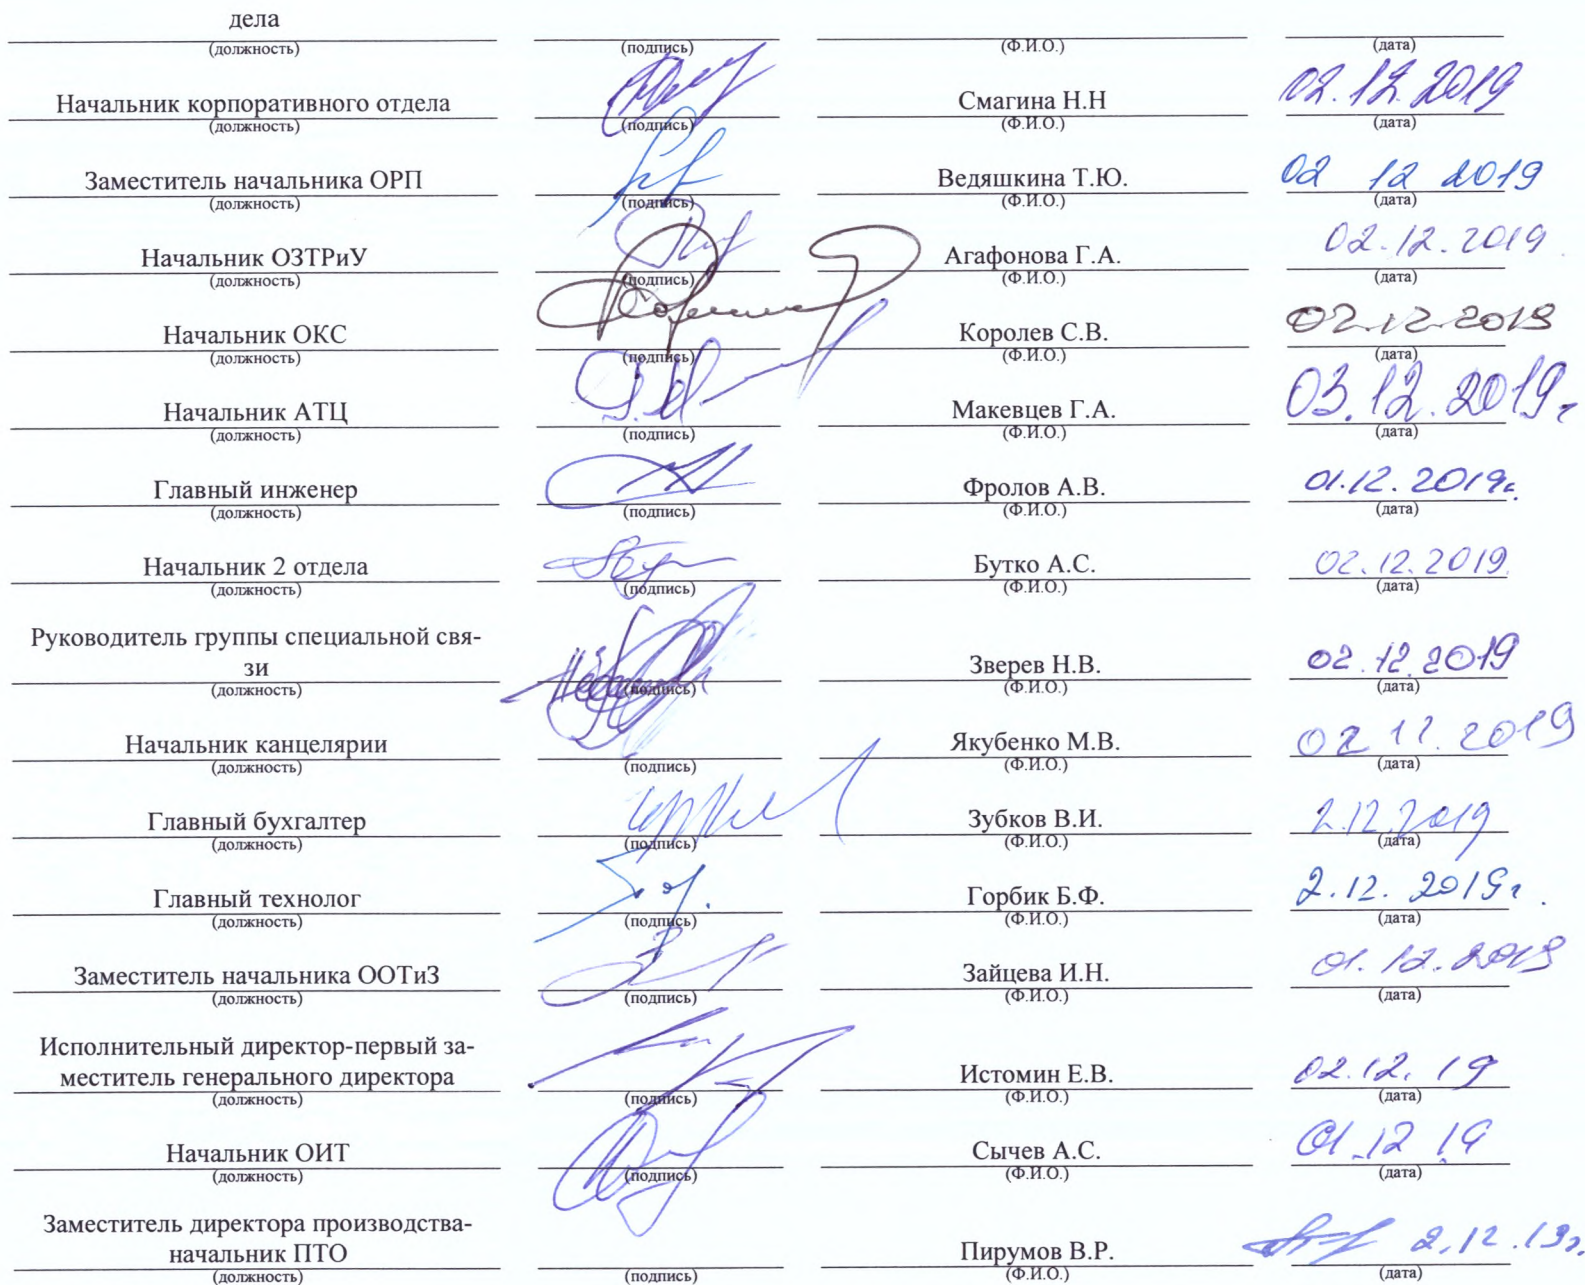 дела
(должность) (подпись) (Ф.И.О.) (дата)
Начальник корпоративного отдела Смагина Н.Н 02.12.2019
(должность) (подпись) (Ф.И.О.) (дата)
Заместитель начальника ОРП Ведяшкина Т.Ю. 02 12 2019
(должность) (подпись) (Ф.И.О.) (дата)
Начальник ОЗТРиУ Агафонова Г.А. 02.12.2019
(должность) (подпись) (Ф.И.О.) (дата)
Начальник ОКС Королев С.В. 02.12.2019
(должность) (подпись) (Ф.И.О.) (дата)
Начальник АТЦ Макевцев Г.А. 03.12.2019г
(должность) (подпись) (Ф.И.О.) (дата)
Главный инженер Фролов А.В. 01.12.2019г.
(должность) (подпись) (Ф.И.О.) (дата)
Начальник 2 отдела Бутко А.С. 02.12.2019
(должность) (подпись) (Ф.И.О.) (дата)
Руководитель группы специальной свя-
зи Зверев Н.В. 02.12.2019
(должность) (подпись) (Ф.И.О.) (дата)
Начальник канцелярии Якубенко М.В. 02 12. 2019
(должность) (подпись) (Ф.И.О.) (дата)
Главный бухгалтер Зубков В.И. 2.12.2019
(должность) (подпись) (Ф.И.О.) (дата)
Главный технолог Горбик Б.Ф. 2.12.2019г.
(должность) (подпись) (Ф.И.О.) (дата)
Заместитель начальника ООТиЗ Зайцева И.Н. 01.12.2019
(должность) (подпись) (Ф.И.О.) (дата)
Исполнительный директор-первый за-
меститель генерального директора Истомин Е.В. 02.12.19
(должность) (подпись) (Ф.И.О.) (дата)
Начальник ОИТ Сычев А.С. 01.12 19
(должность) (подпись) (Ф.И.О.) (дата)
Заместитель директора производства-
начальник ПТО Пирумов В.Р. 2.12.19г.
(должность) (подпись) (Ф.И.О.) (дата)